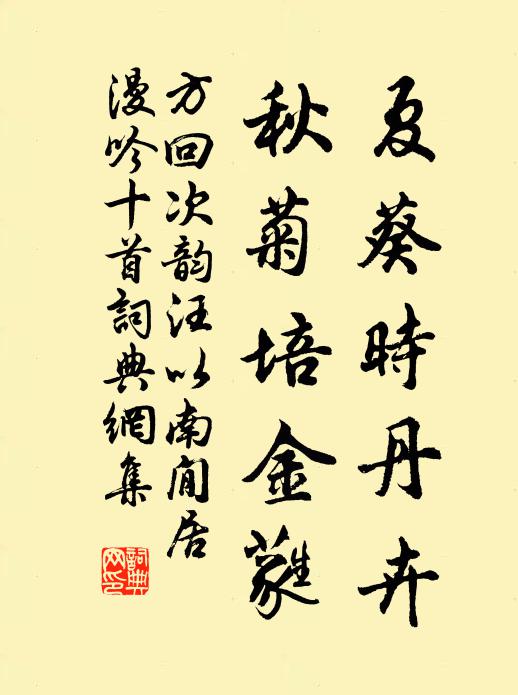 夏葵時丹卉
秋菊培金蕤
方回次韵汪以南閒居
漫吟十首詞典網集
詞典
网印